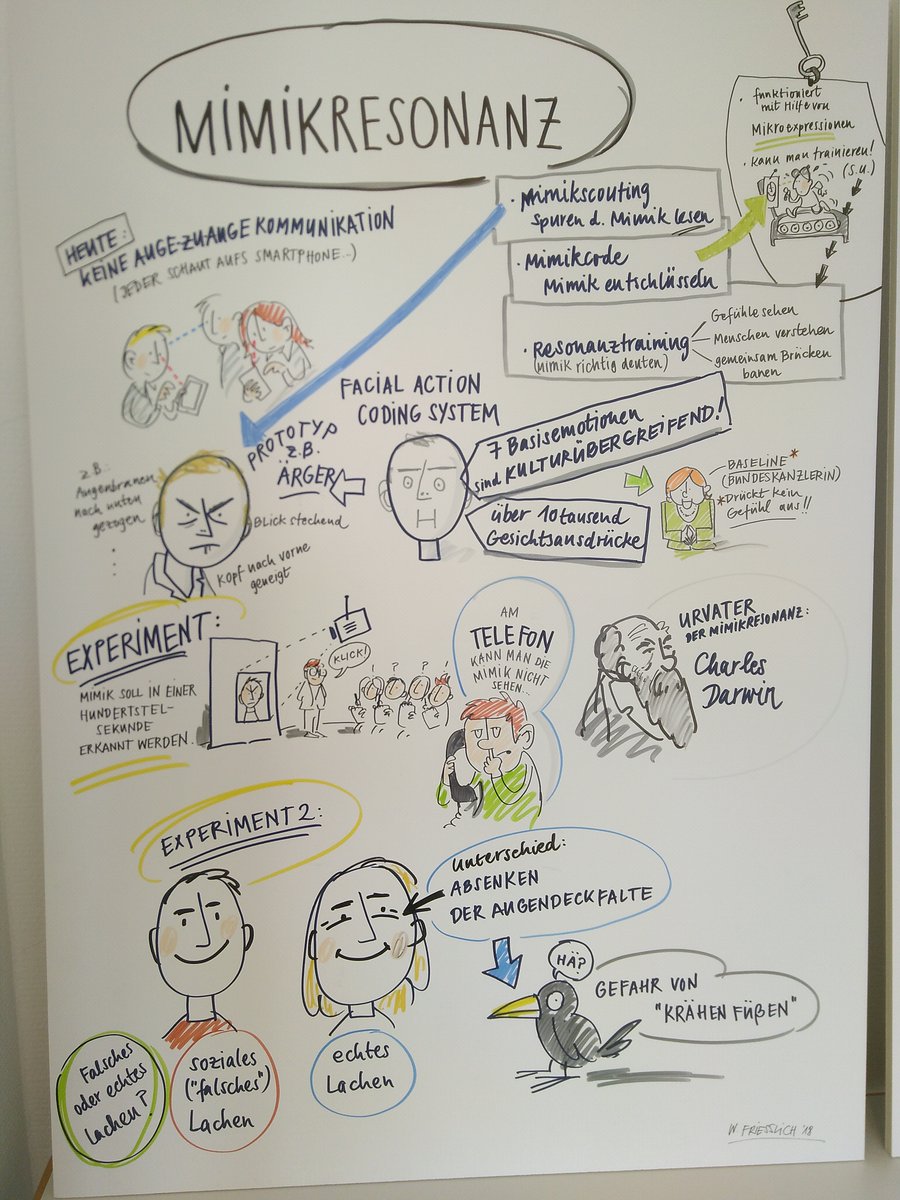 MIMIKRESONANZ
· funktioniert
mit Hilfe von
Mikroexpressionen
· kann man trainieren!
(s.u.)
· Mimikscouting
Spuren d. Mimik lesen
· Mimikcode
Mimik entschlüsseln
· Resonanztraining
(Mimik richtig deuten)
Gefühle sehen
Menschen verstehen
gemeinsam Brücken
bauen
HEUTE:
KEINE AUGE-ZU-AUGE KOMMUNIKATION
(JEDER SCHAUT AUFS SMARTPHONE...)
FACIAL ACTION
CODING SYSTEM
7 Basisemotionen
sind KULTURÜBERGREIFEND!
über 10tausend
Gesichtsausdrücke
BASELINE*
(BUNDESKANZLERIN)
*Drückt kein
Gefühl aus!!
PROTOTYP
z.B.
ÄRGER
z.B.:
Augenbrauen
nach unten
gezogen
Blick stechend
Kopf nach vorne
geneigt
EXPERIMENT:
MIMIK SOLL IN EINER
HUNDERTSTEL-
SEKUNDE
ERKANNT WERDEN.
KLICK!
? ? ?
AM
TELEFON
KANN MAN DIE
MIMIK NICHT
SEHEN...
URVATER
DER MIMIKRESONANZ:
Charles
Darwin
EXPERIMENT 2:
Unterschied:
ABSENKEN
DER AUGENDECKFALTE
HÄ?
GEFAHR VON
"KRÄHEN FÜßEN"
Falsches
oder echtes
Lachen?
soziales
("falsches")
Lachen
echtes
Lachen
W FRIESSLICH '18